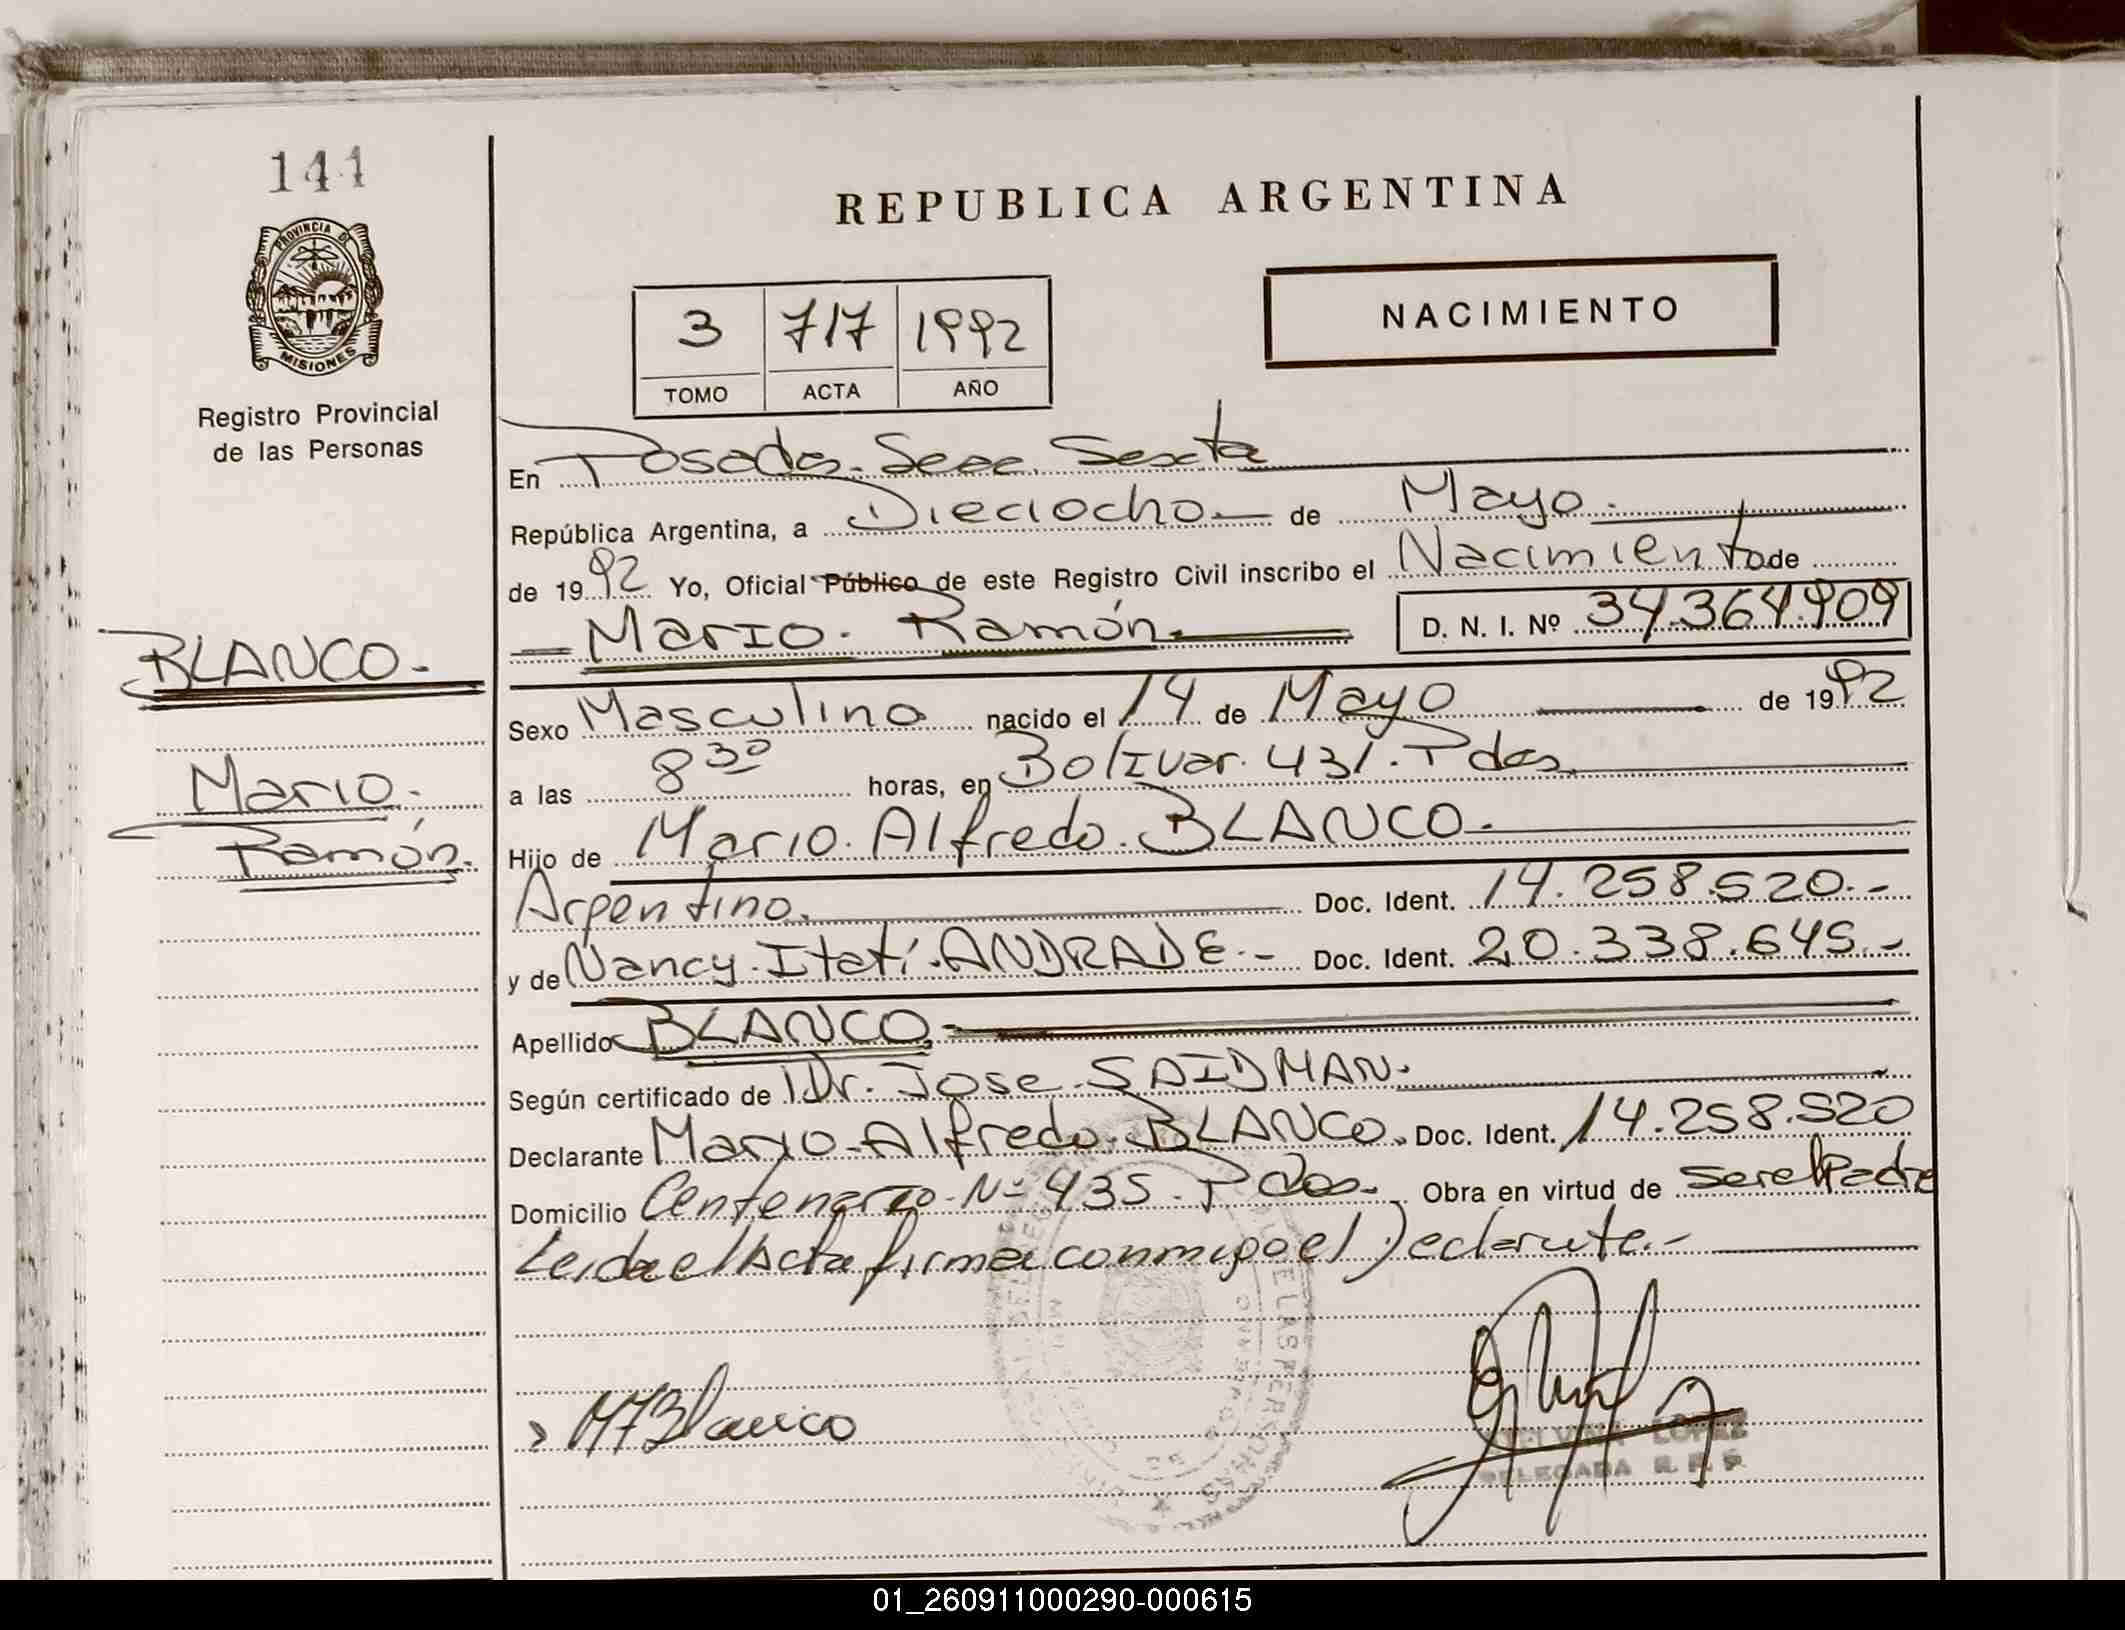 144
PROVINCIA DE
MISIONES
Registro Provincial
de las Personas
BLANCO.-
Mario.
Ramón.
REPUBLICA ARGENTINA
3 717 1992
TOMO ACTA AÑO
NACIMIENTO
En Posadas. Secc. Sexta
República Argentina, a Dieciocho de Mayo.
de 1992 Yo, Oficial Público de este Registro Civil inscribo el Nacimiento de
Mario. Ramón. D. N. I. Nº 34.364.909
Sexo Masculino nacido el 14 de Mayo de 1992
a las 8 30 horas, en Bolívar. 431. Pdas.
Hijo de Mario. Alfredo. BLANCO.
Argentino. Doc. Ident. 14.258.520.-
y de Nancy. Itatí. ANDRADE.- Doc. Ident. 20.338.645.-
Apellido BLANCO.-
Según certificado de Dr. Jose. SAIDMAN.
Declarante Mario. Alfredo. BLANCO. Doc. Ident. 14.258.520
Domicilio Centenario. Nº 435. Pdas. Obra en virtud de ser el Padre
Leida el Acta firma conmigo el Declarante.-
MABlanco
LOPEZ
DELEGADA R. P. P.
01_260911000290-000615